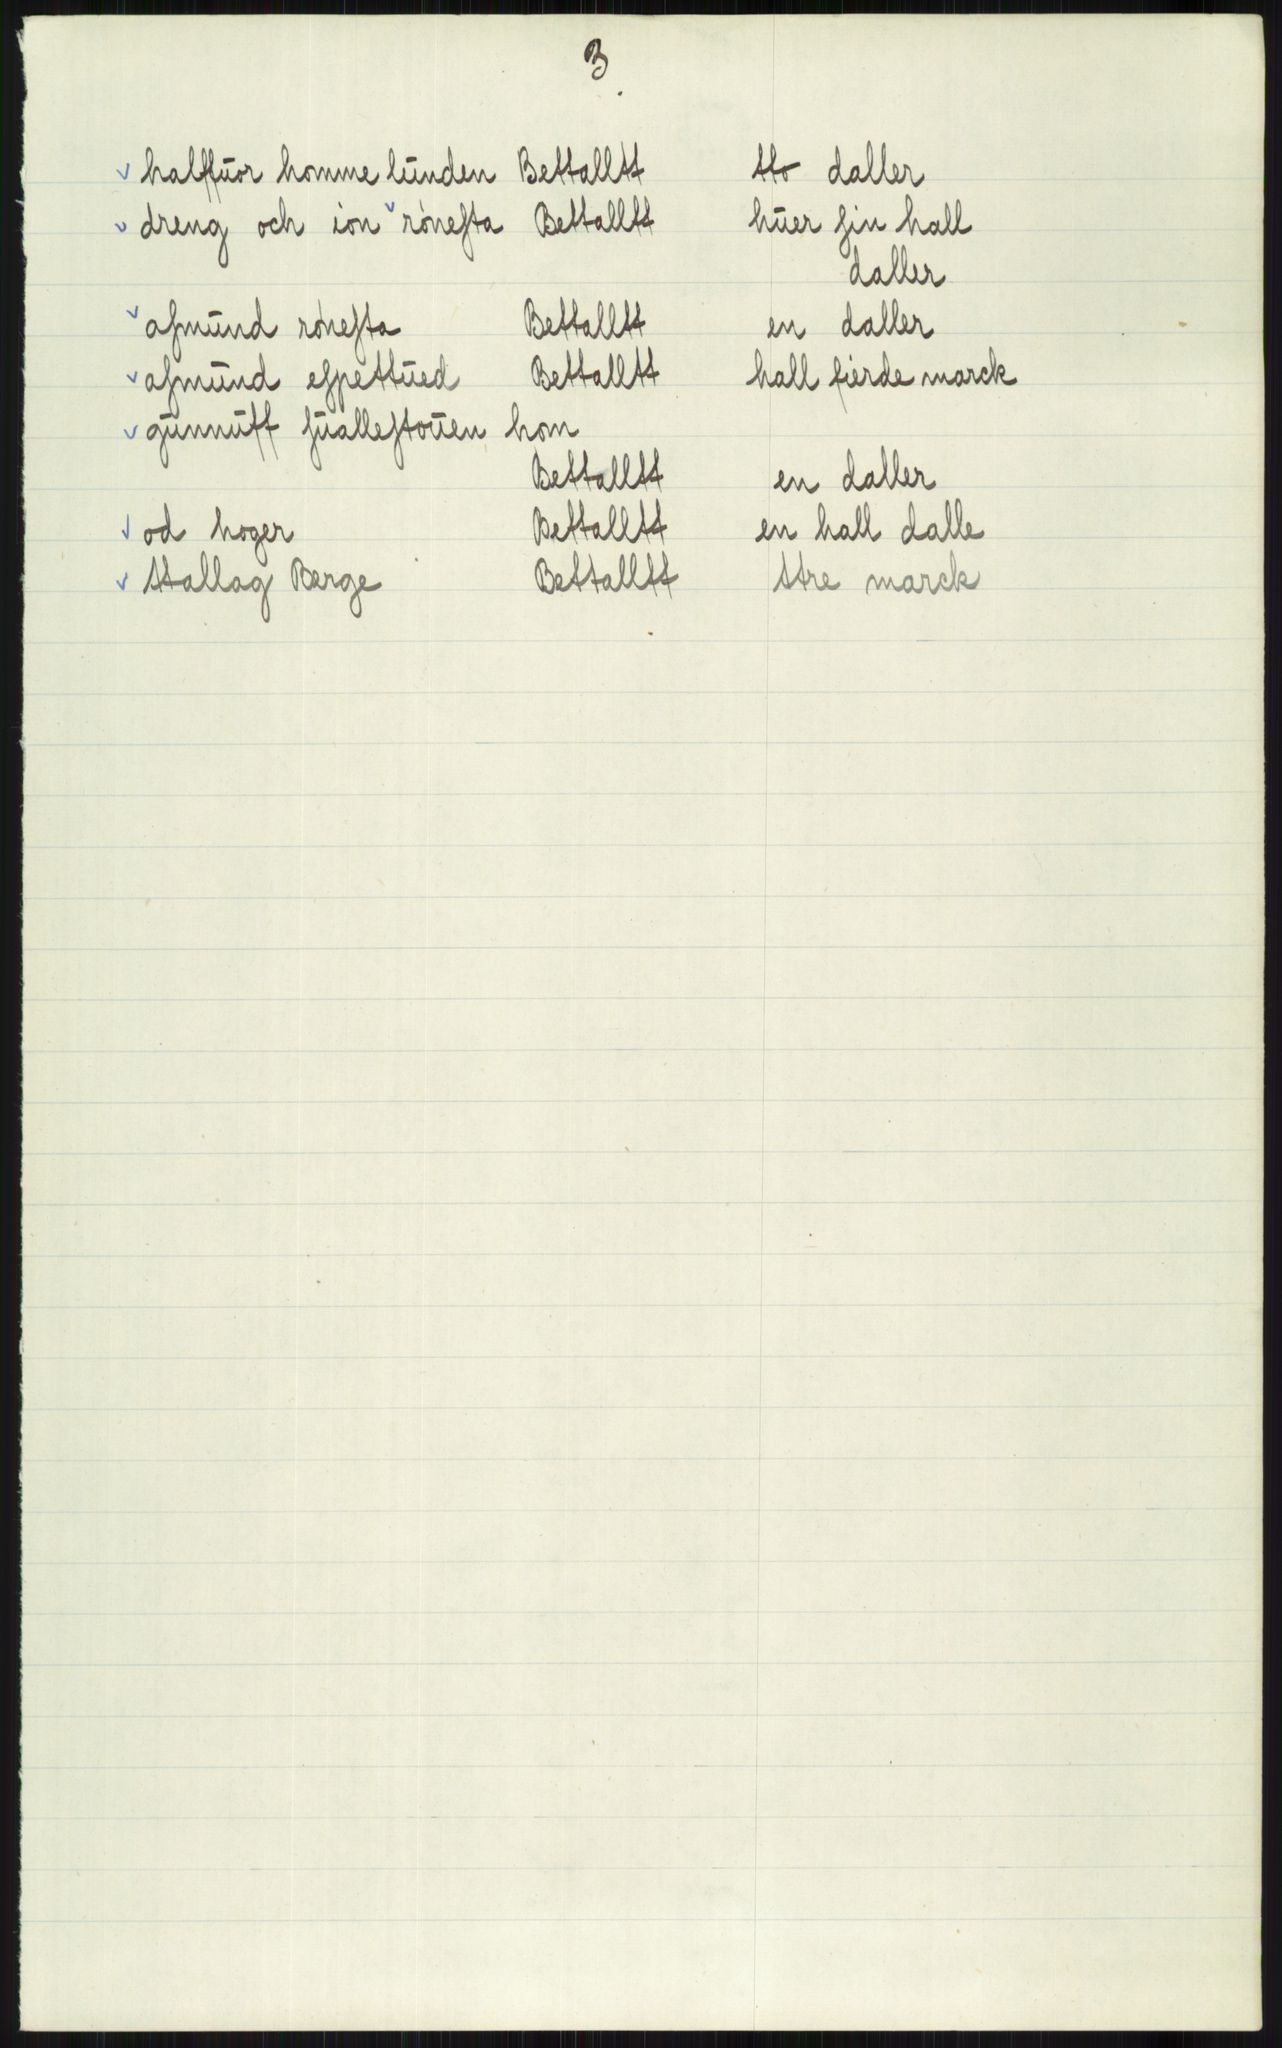 3
halffūor homme lūnden Bettalltt tto daller
dreng och ion róneſta Bettalltt hūer ſin hall
daller
aſmūnd róneſta Bettalltt en daller
aſmūnd eſpettūed Bettalltt hall fierde marck
gūnnūff ſūalleſtoūen hom
Bettalltt en daller
od hoger Bettalltt en hall dalle
ttallag Berge Bettalltt ttre marck